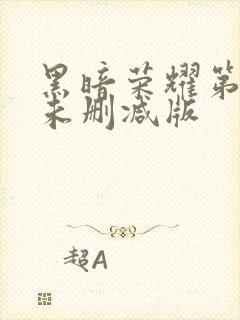 黑暗荣耀第
未删减版
超A